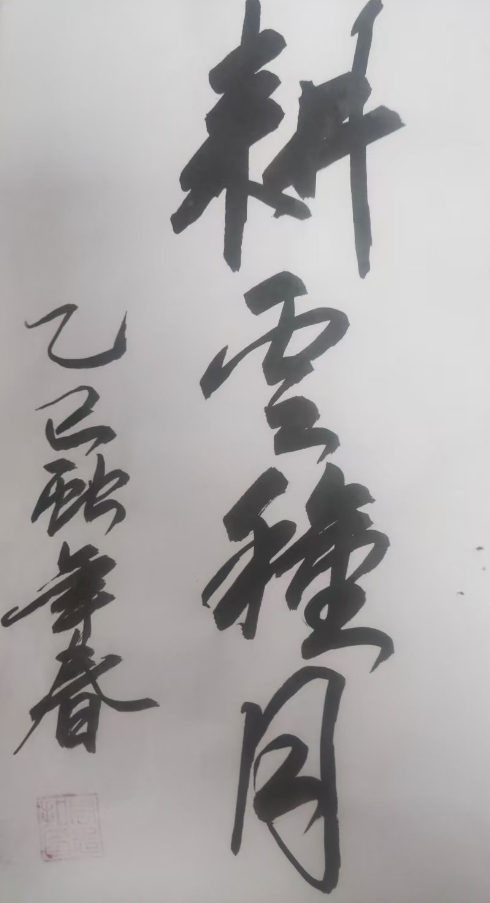 耕雲種月
乙巳蛇年春